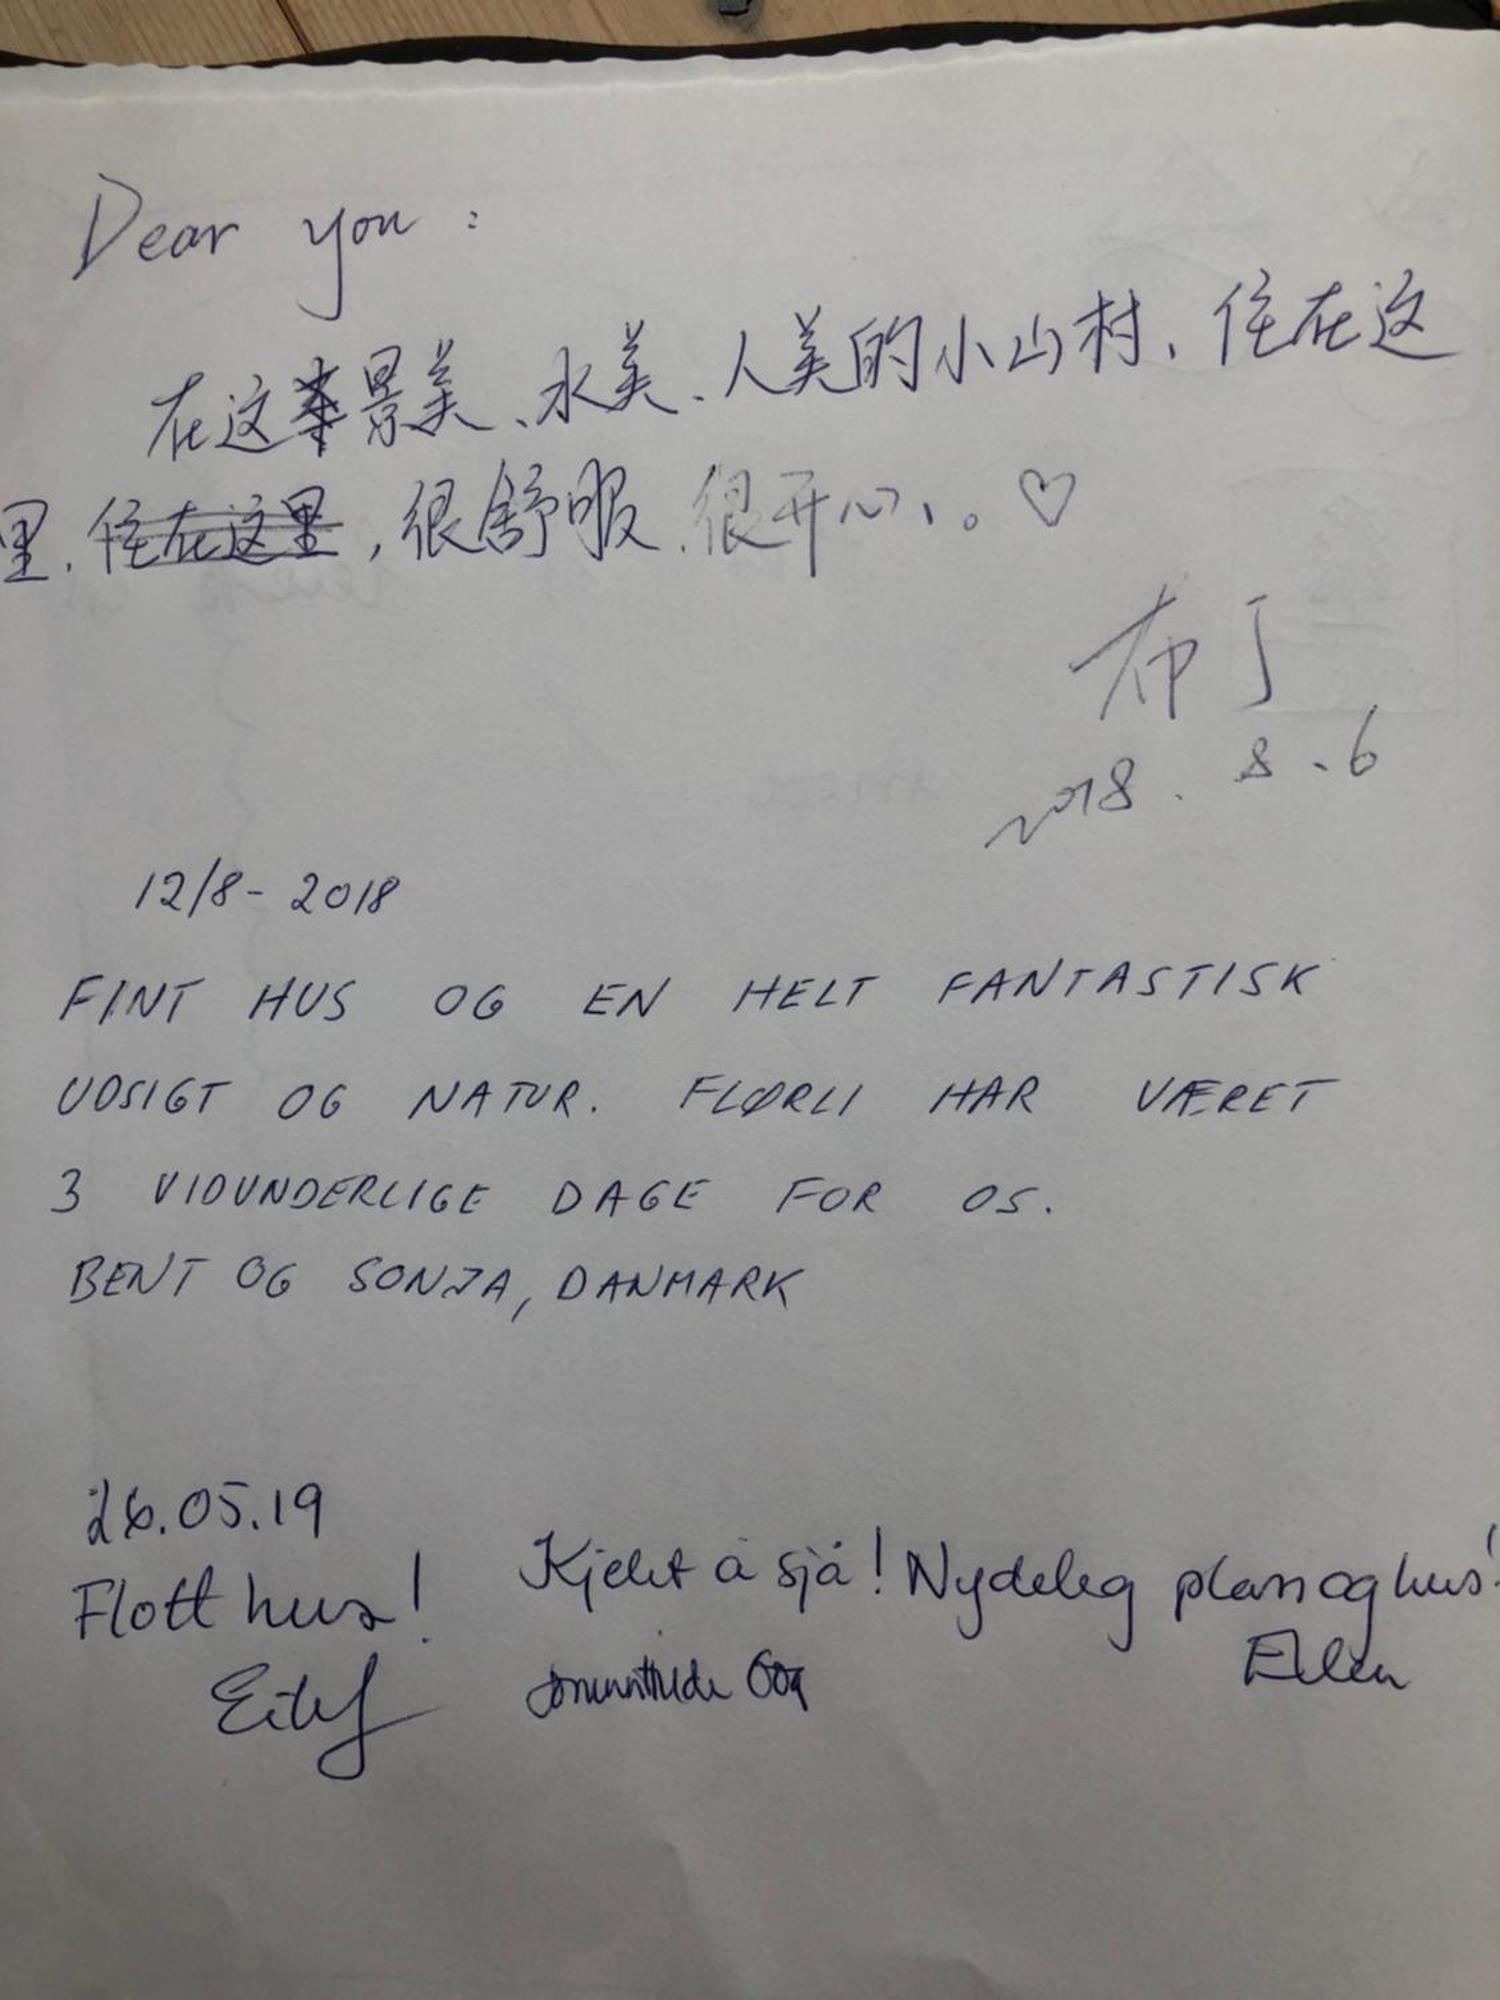 Dear you :
在这景美、水美、人美的小山村、住在这
里、住在这里，很舒服、很开心。♡
布丁
2018.8.6
12/8-2018
FINT HUS OG EN HELT FANTASTISK
UDSIGT OG NATUR. FLØRLI HAR VÆRET
3 VIDUNDERLIGE DAGE FOR OS.
BENT OG SONJA, DANMARK
26.05.19
Flott hus! Kjekt å sjå! Nydeleg plan og hus!
Eilef Ellen